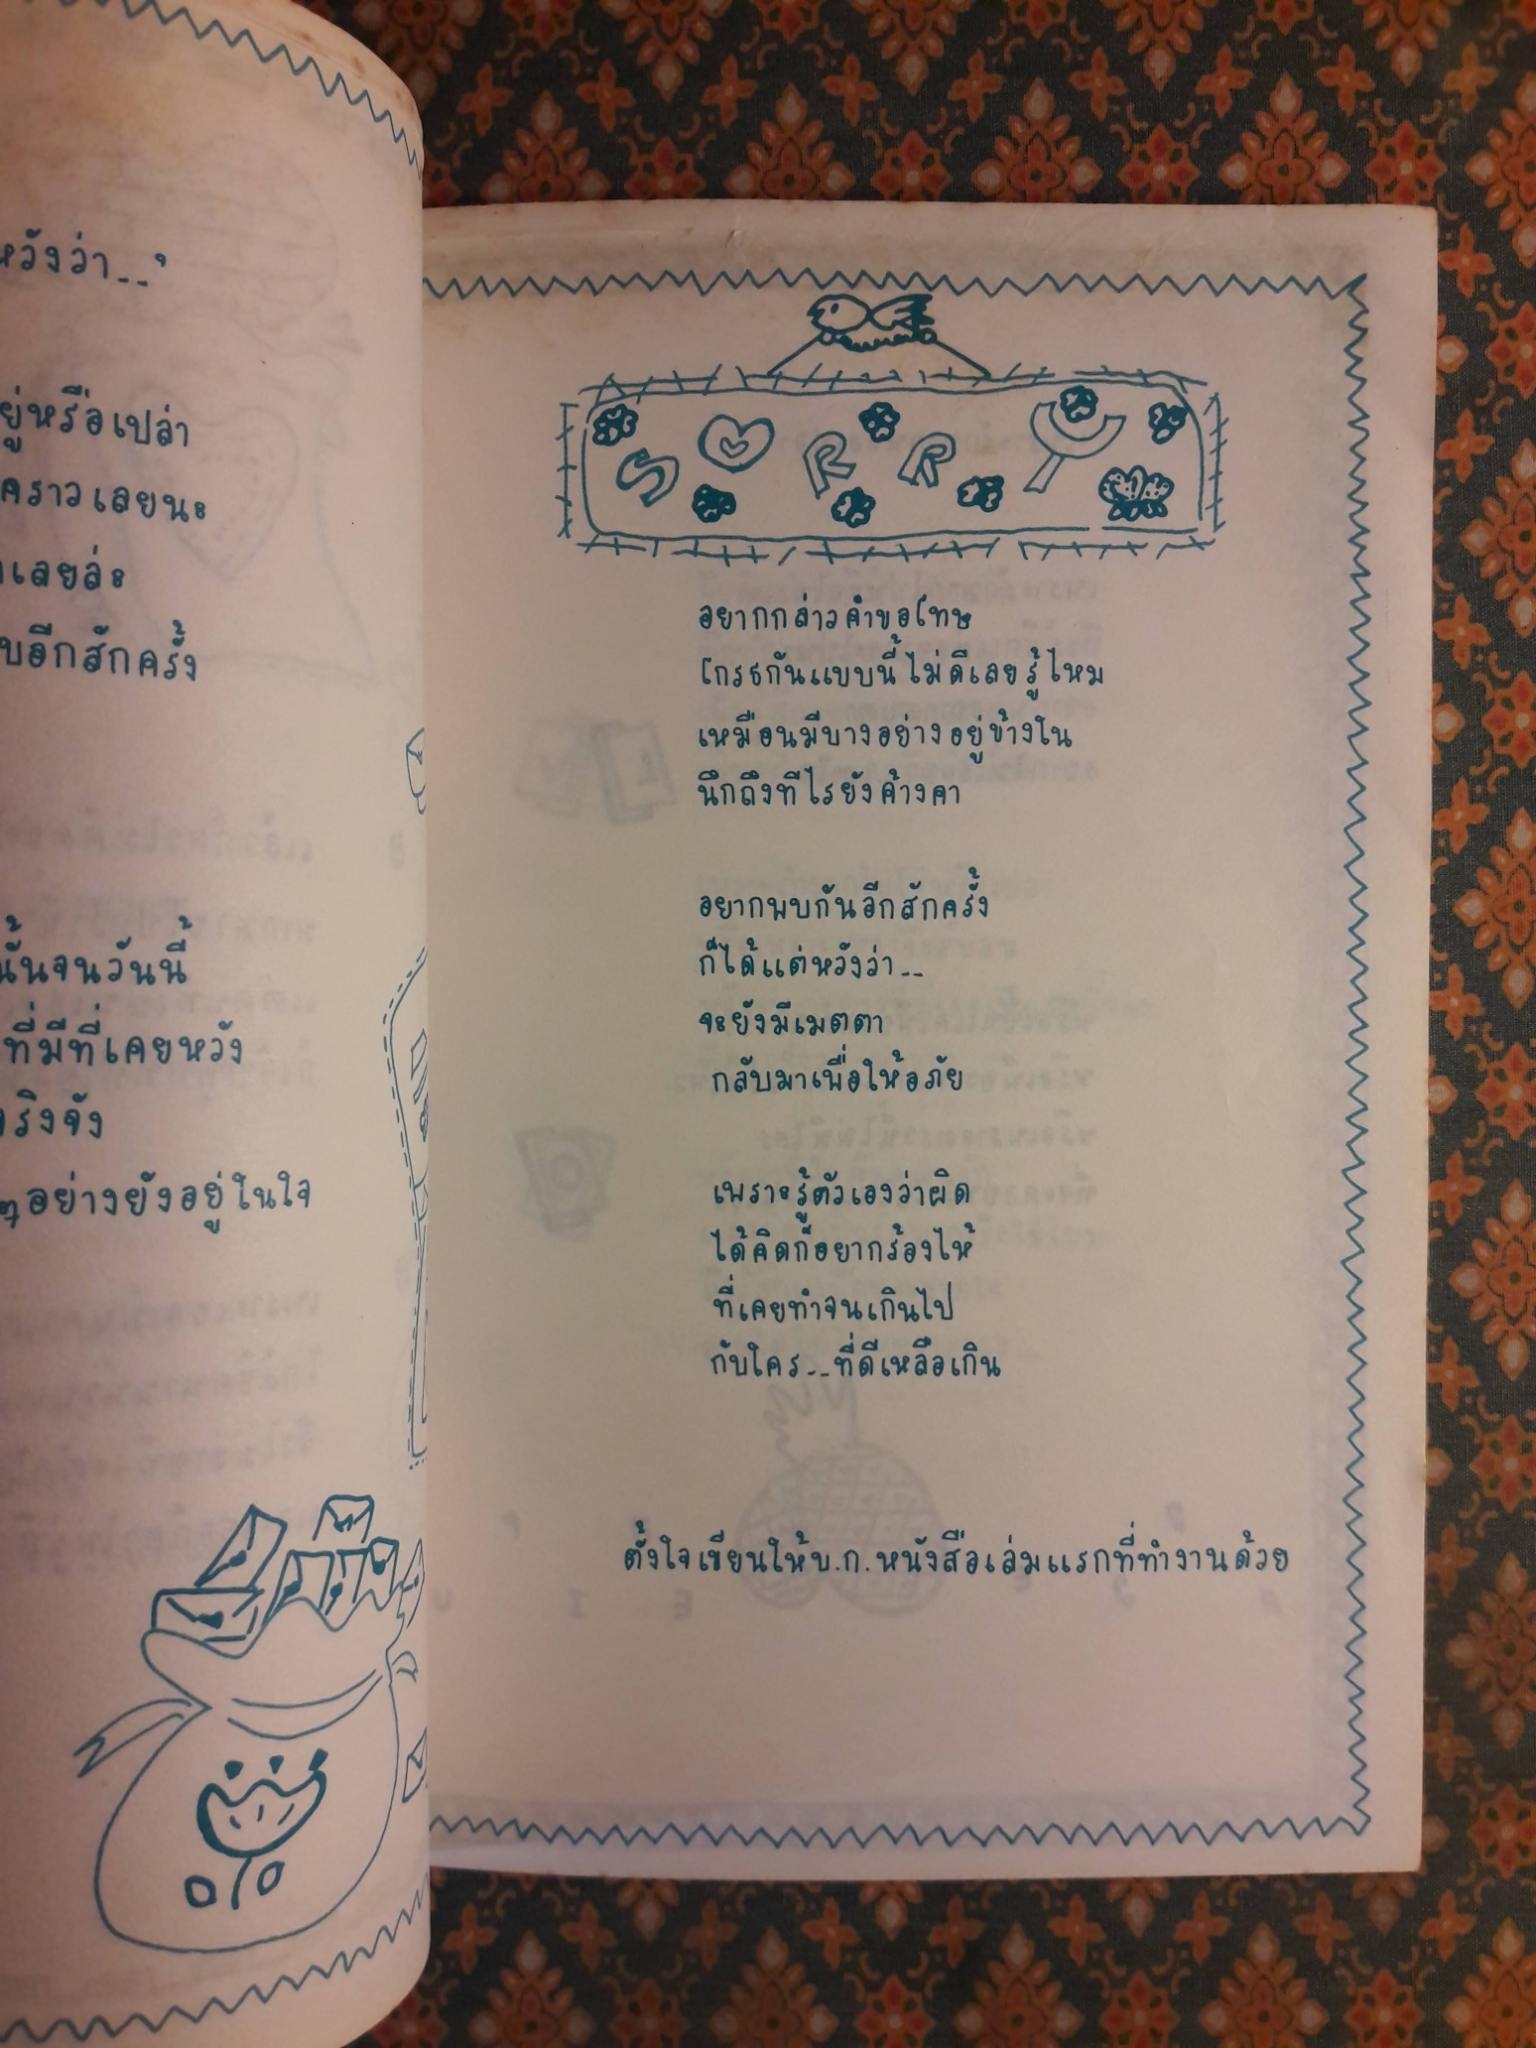 หวังว่า--'
ยู่หรือเปล่า
คราวเลยนะ
เลยล่ะ
บอีกสักครั้ง
นั้นจนวันนี้
ที่มีที่เคยหวัง
จริงจัง
อย่างยังอยู่ในใจ
SORRY
อยากกล่าวคำขอโทษ
โกรธกันแบบนี้ไม่ดีเลยรู้ไหม
เหมือนมีบางอย่างอยู่ข้างใน
นึกถึงทีไรยังค้างคา
อยากพบกันอีกสักครั้ง
ก็ได้แต่หวังว่า--
จะยังมีเมตตา
กลับมาเพื่อให้อภัย
เพราะรู้ตัวเองว่าผิด
ได้คิดก็อยากร้องไห้
ที่เคยทำจนเกินไป
กับใคร--ที่ดีเหลือเกิน
ตั้งใจเขียนให้บ.ก.หนังสือเล่มแรกที่ทำงานด้วย